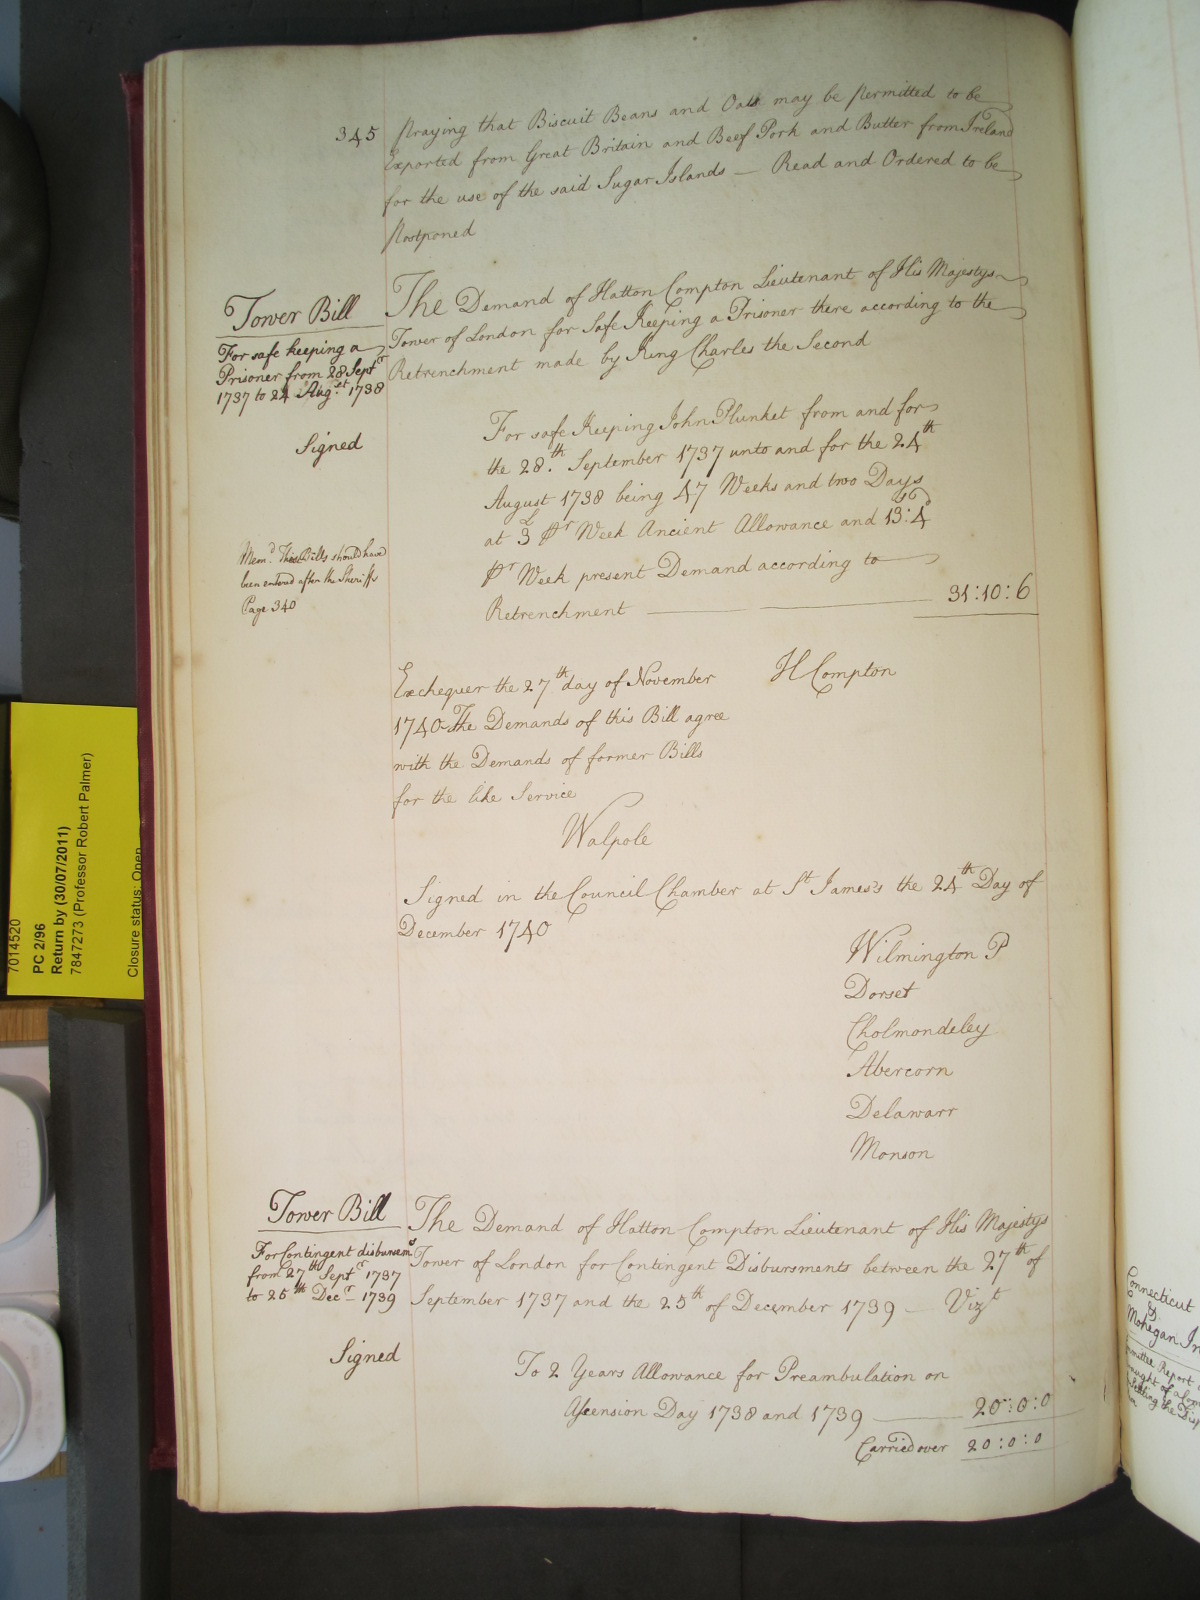 345
praying that Biscuit Beans and Oats may be permitted to be
Exported from Great Britain and Beef Pork and Butter from Ireland
for the use of the said Sugar Islands — Read and Ordered to be
Postponed
Tower Bill
For safe keeping a
Prisoner from 28 Septr
1737 to 24 Augst 1738
Signed
The Demand of Hatton Compton Lieutenant of His Majestys
Tower of London for Safe Keeping a Prisoner there according to the
Retrenchment made by King Charles the Second
For safe Keeping John Plunket from and for
the 28th September 1737 unto and for the 24th
August 1738 being 47 Weeks and two Days
at 3L pr Week Ancient Allowance and 13s:4d
pr Week present Demand according to
Retrenchment — 31:10:6
Memd. These Bills should have
been entered after the Sheriffs
Page 340
Exchequer the 27th day of November
1740 The Demands of this Bill agree
with the Demands of former Bills
for the like Service
H Compton
Walpole
Signed in the Council Chamber at St James's the 24th Day of
December 1740
Wilmington P
Dorset
Cholmondeley
Abercorn
Delawarr
Monson
Tower Bill
For Contingent disbursemts
from 27th Septr 1737
to 25th Decr 1739
Signed
The Demand of Hatton Compton Lieutenant of His Majestys
Tower of London for Contingent Disbursments between the 27th of
September 1737 and the 25th of December 1739 — Vizt
To 2 Years Allowance for Preambulation on
Ascension Day 1738 and 1739 — 20:0:0
Carried over 20:0:0
7014520
PC 2/96
Return by (30/07/2011)
7847273 (Professor Robert Palmer)
Closure status: Open
Connecticut
&
Mohegan In
Report